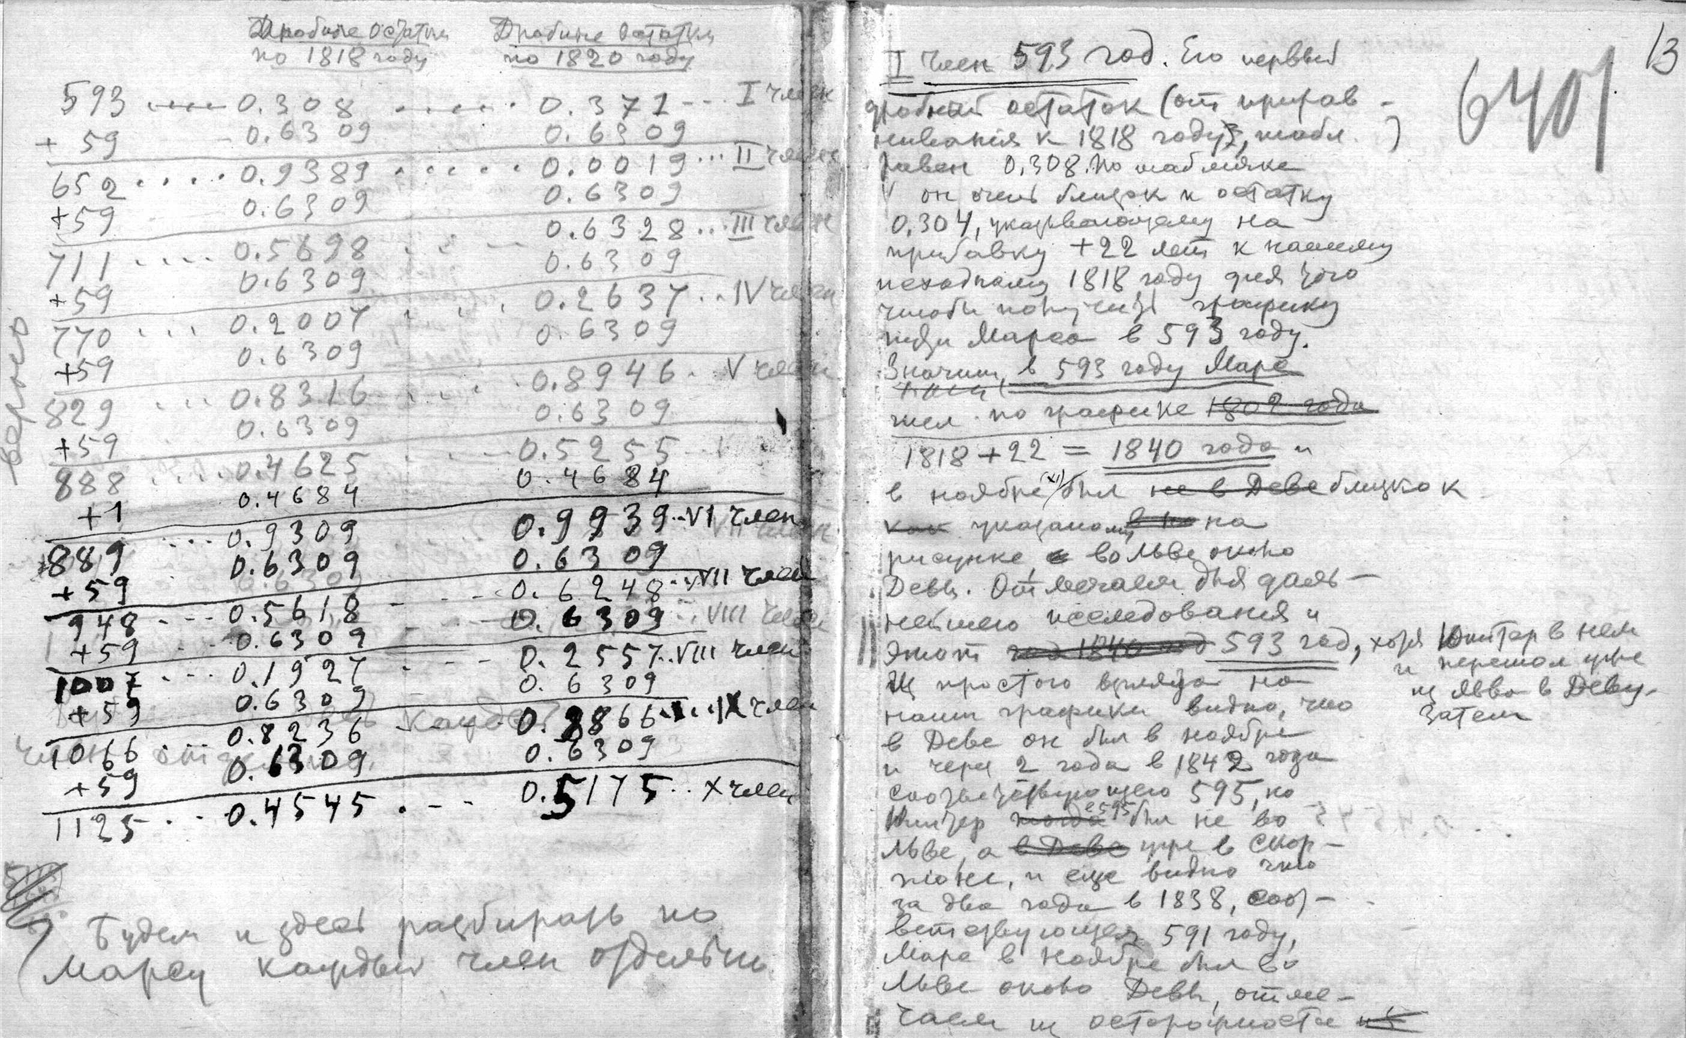 Дробные остатки
по 1818 году
Дробные остатки
по 1820 году
593 ..... 0.308 ..... 0.371 --- I член
+ 59 - 0.6309 0.6309
652 .... 0.9389 ..... 0.0019 ... II член
+59 0.6309 0.6309
711 .... 0.5698 .. 0.6328 ... III член
+59 0.6309 0.6309
770 ... 0.2007 . . . 0.2637 .. IV член
+59 0.6309 0.6309
829 ... 0.8316 ... 0.8946 . V член
+59 0.6309 0.6309
888 0.4625 0.5255
+1 0.4684 0.4684
889 ... 0.9309 0.9939 .. VI член
+59 0.6309 0.6309
948 --- 0.5618 --- 0.6248 .. VII член
+59 0.6309 0.6309
1007 0.1927 --- 0.2557 .. VIII член
+59 0.6309 0.6309
1066 ... 0.8236 0.8866 ... IX член
+59 0.6309 0.6309
1125 .. 0.4545 . -- 0.5175 .. X член
верно
Будем и здесь разбирать по
Марсу каждый член отдельно
13
6401
I член 593 год. Его первый
дробный остаток (от прирав-
нивания к 1818 году, табл. )
равен 0,308. По табличке
V он очень близок к остатку
0,304, указывающему на
прибавку +22 лет к нашему
исходному 1818 году для того
чтобы получить графику
пути Марса в 593 году.
Значит, в 593 году Марс
шел по графике 1802 года
1818 + 22 = 1840 года и
в ноябре (XI) был не в Деве близко к
как указано на
рисунке, во Льве около
Девы. Отмечаем для даль-
нейшего исследования и
этот год 1840 год 593 год, хотя Юпитер в нем
и перешол уже
из Льва в Деву.
Затем
Из простого взгляда на
наши графики видно, что
в Деве он был в ноябре
и через 2 года в 1842 года
соответствующего 595, но
Юпитер тогда в 595 был не во
Льве, а в Деве уже в Скор-
пионе, и еще видно что
за два года в 1838, соот-
ветствующем 591 году,
Марс в ноябре был во
Льве около Девы, отме-
чаем из осторожности